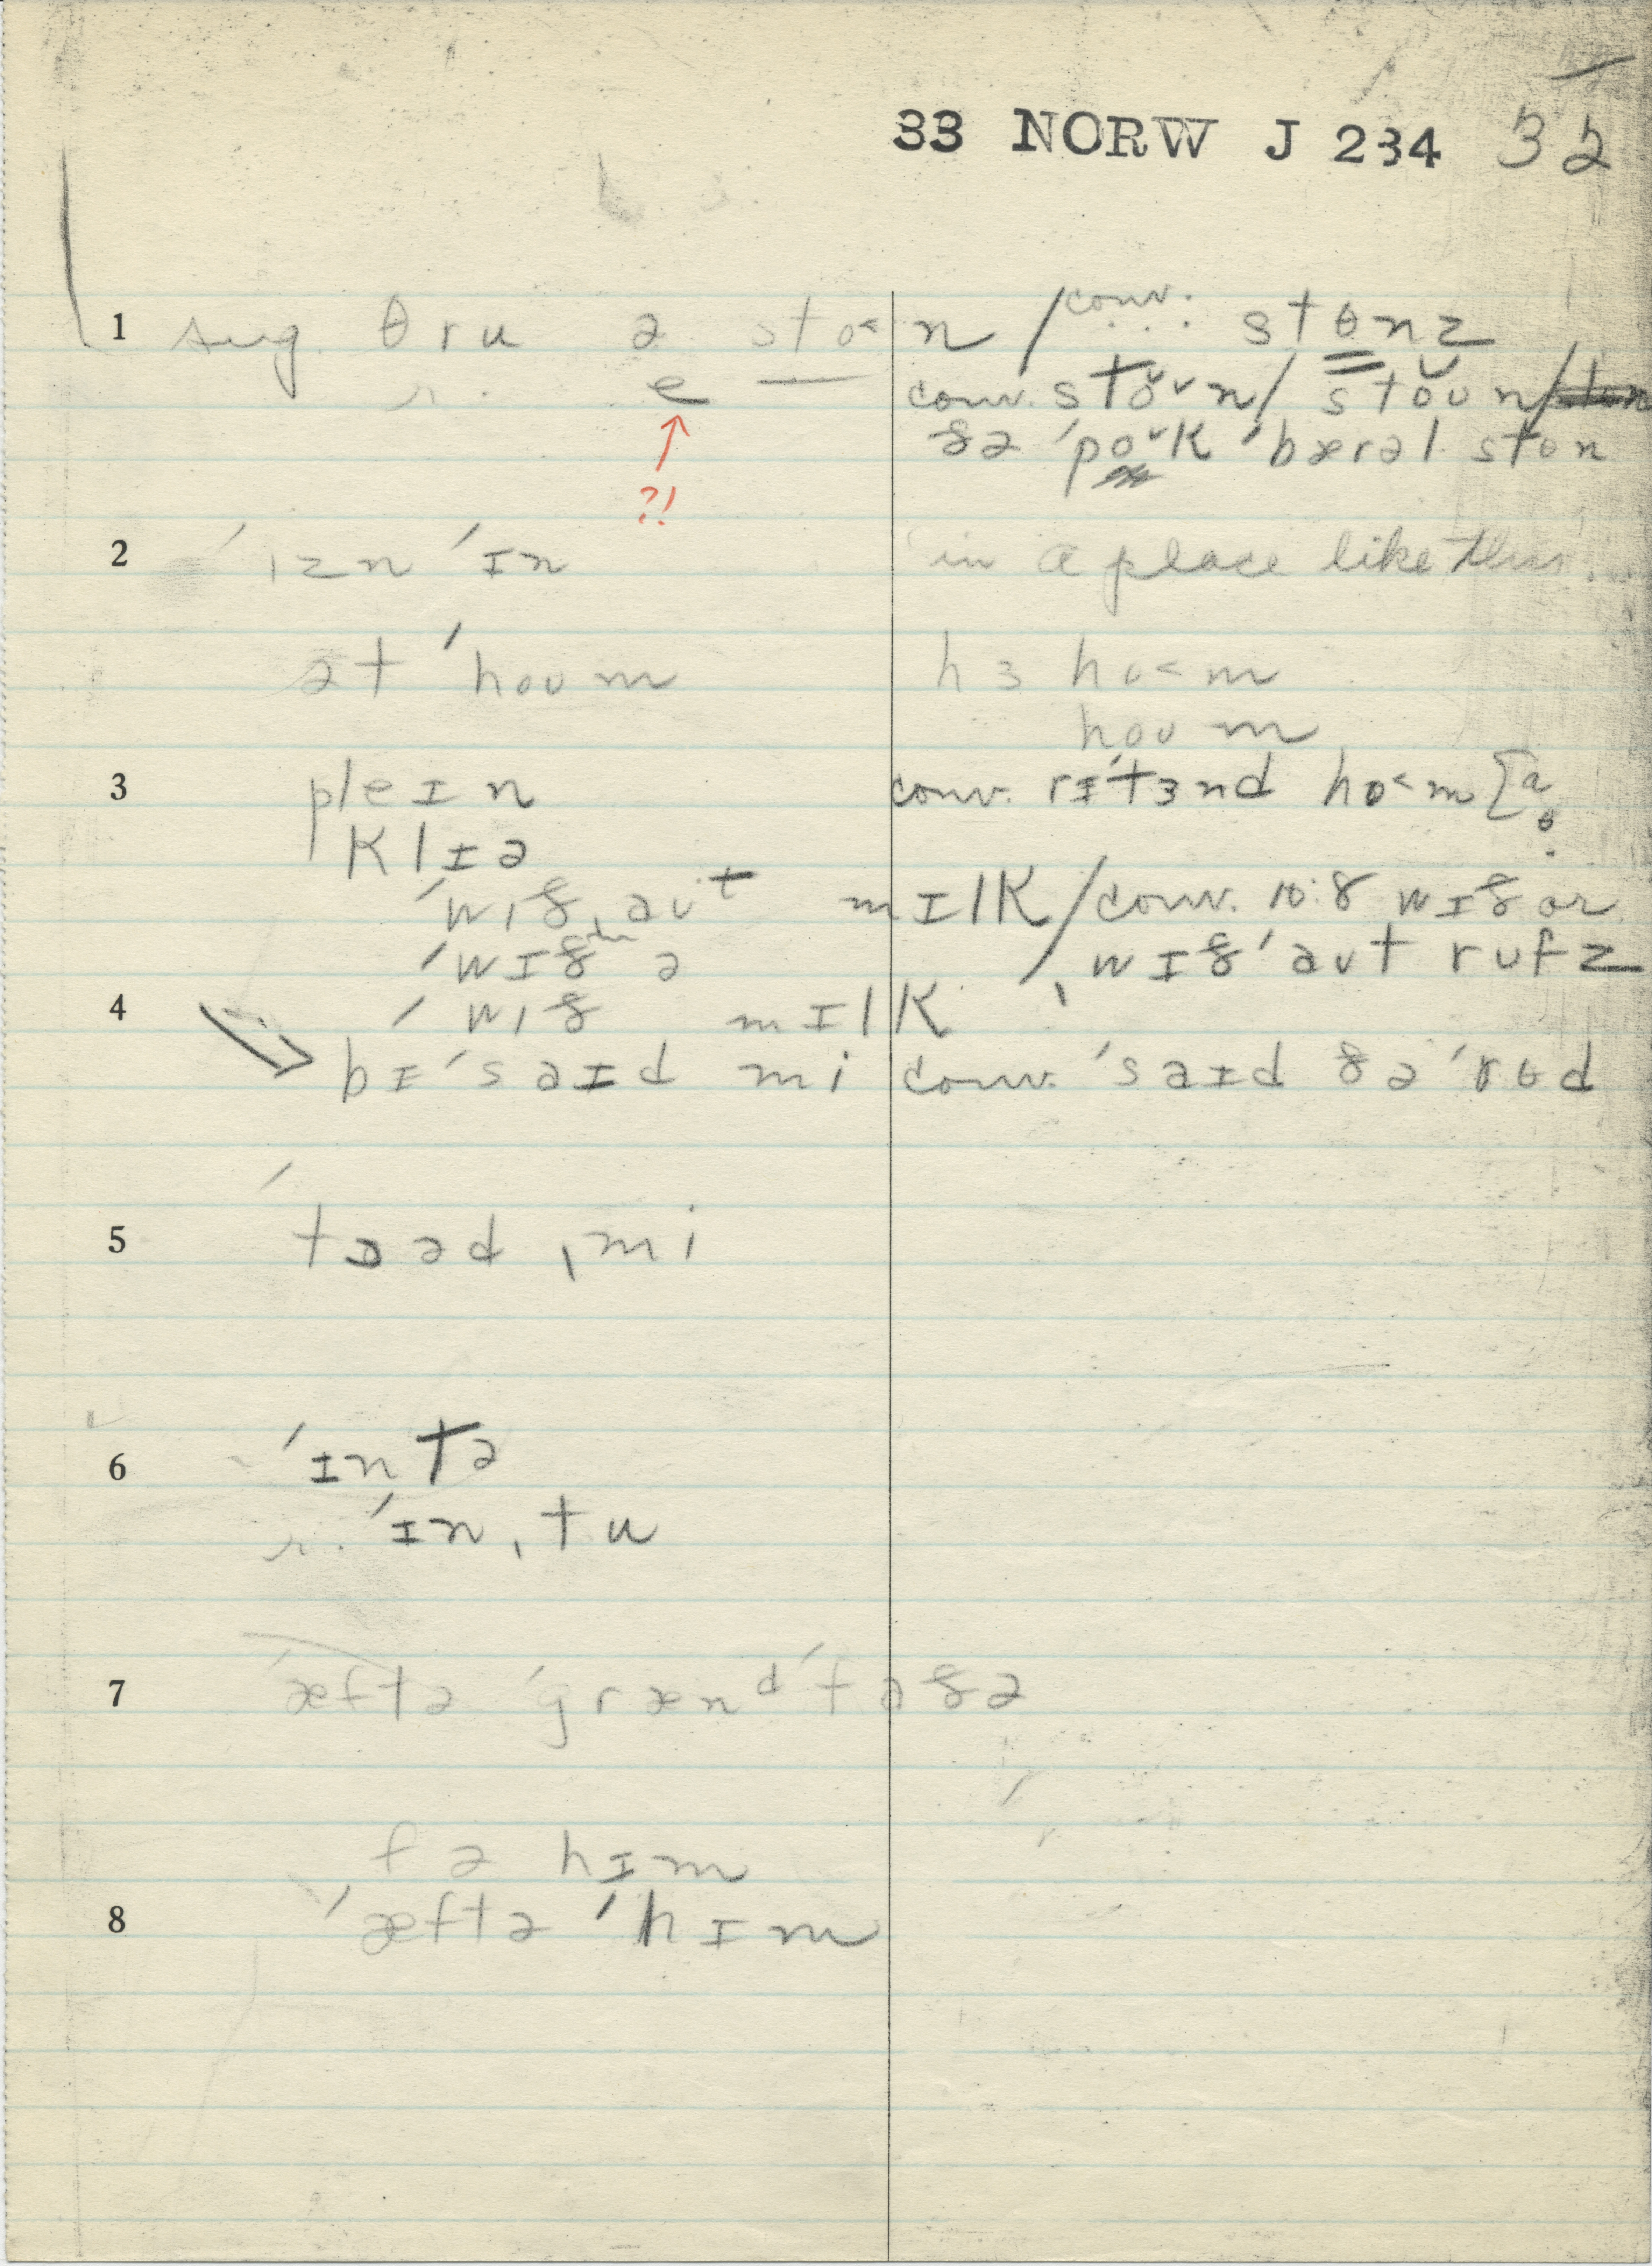 33 NORW J 234 32
1 sug. θru ə sto˂n / conv. stɵnz
r. e conv. stɵ̌ᴠn / stǒʊn /
?! ðə ˈpoˇk ˈbærəl stɵn
2 ˈɪzn ˈɪn in a place like this
ət ˈhoʊm hɜ ho˂m
hoʊm
3 pleɪn conv. rɪˈtɜnd ho˂m [a
klɪə ɵ
ˈwɪðˌaʊt mɪlk / conv. 10:8 wɪð or
ˈwɪð ə wɪðˈaʊt rufz
4 ˈwɪð mɪlk
bɪˈsaɪd mi conv. ˈsaɪd ðə ˈrɵd
5 ˈtɔəd ˌmi
6 ˈɪntə
r. ˈɪnˌtu
7 ˈæftə ˈgrænᵈˈfaðə
fə hɪm
8 ˈæftə ˈhɪm